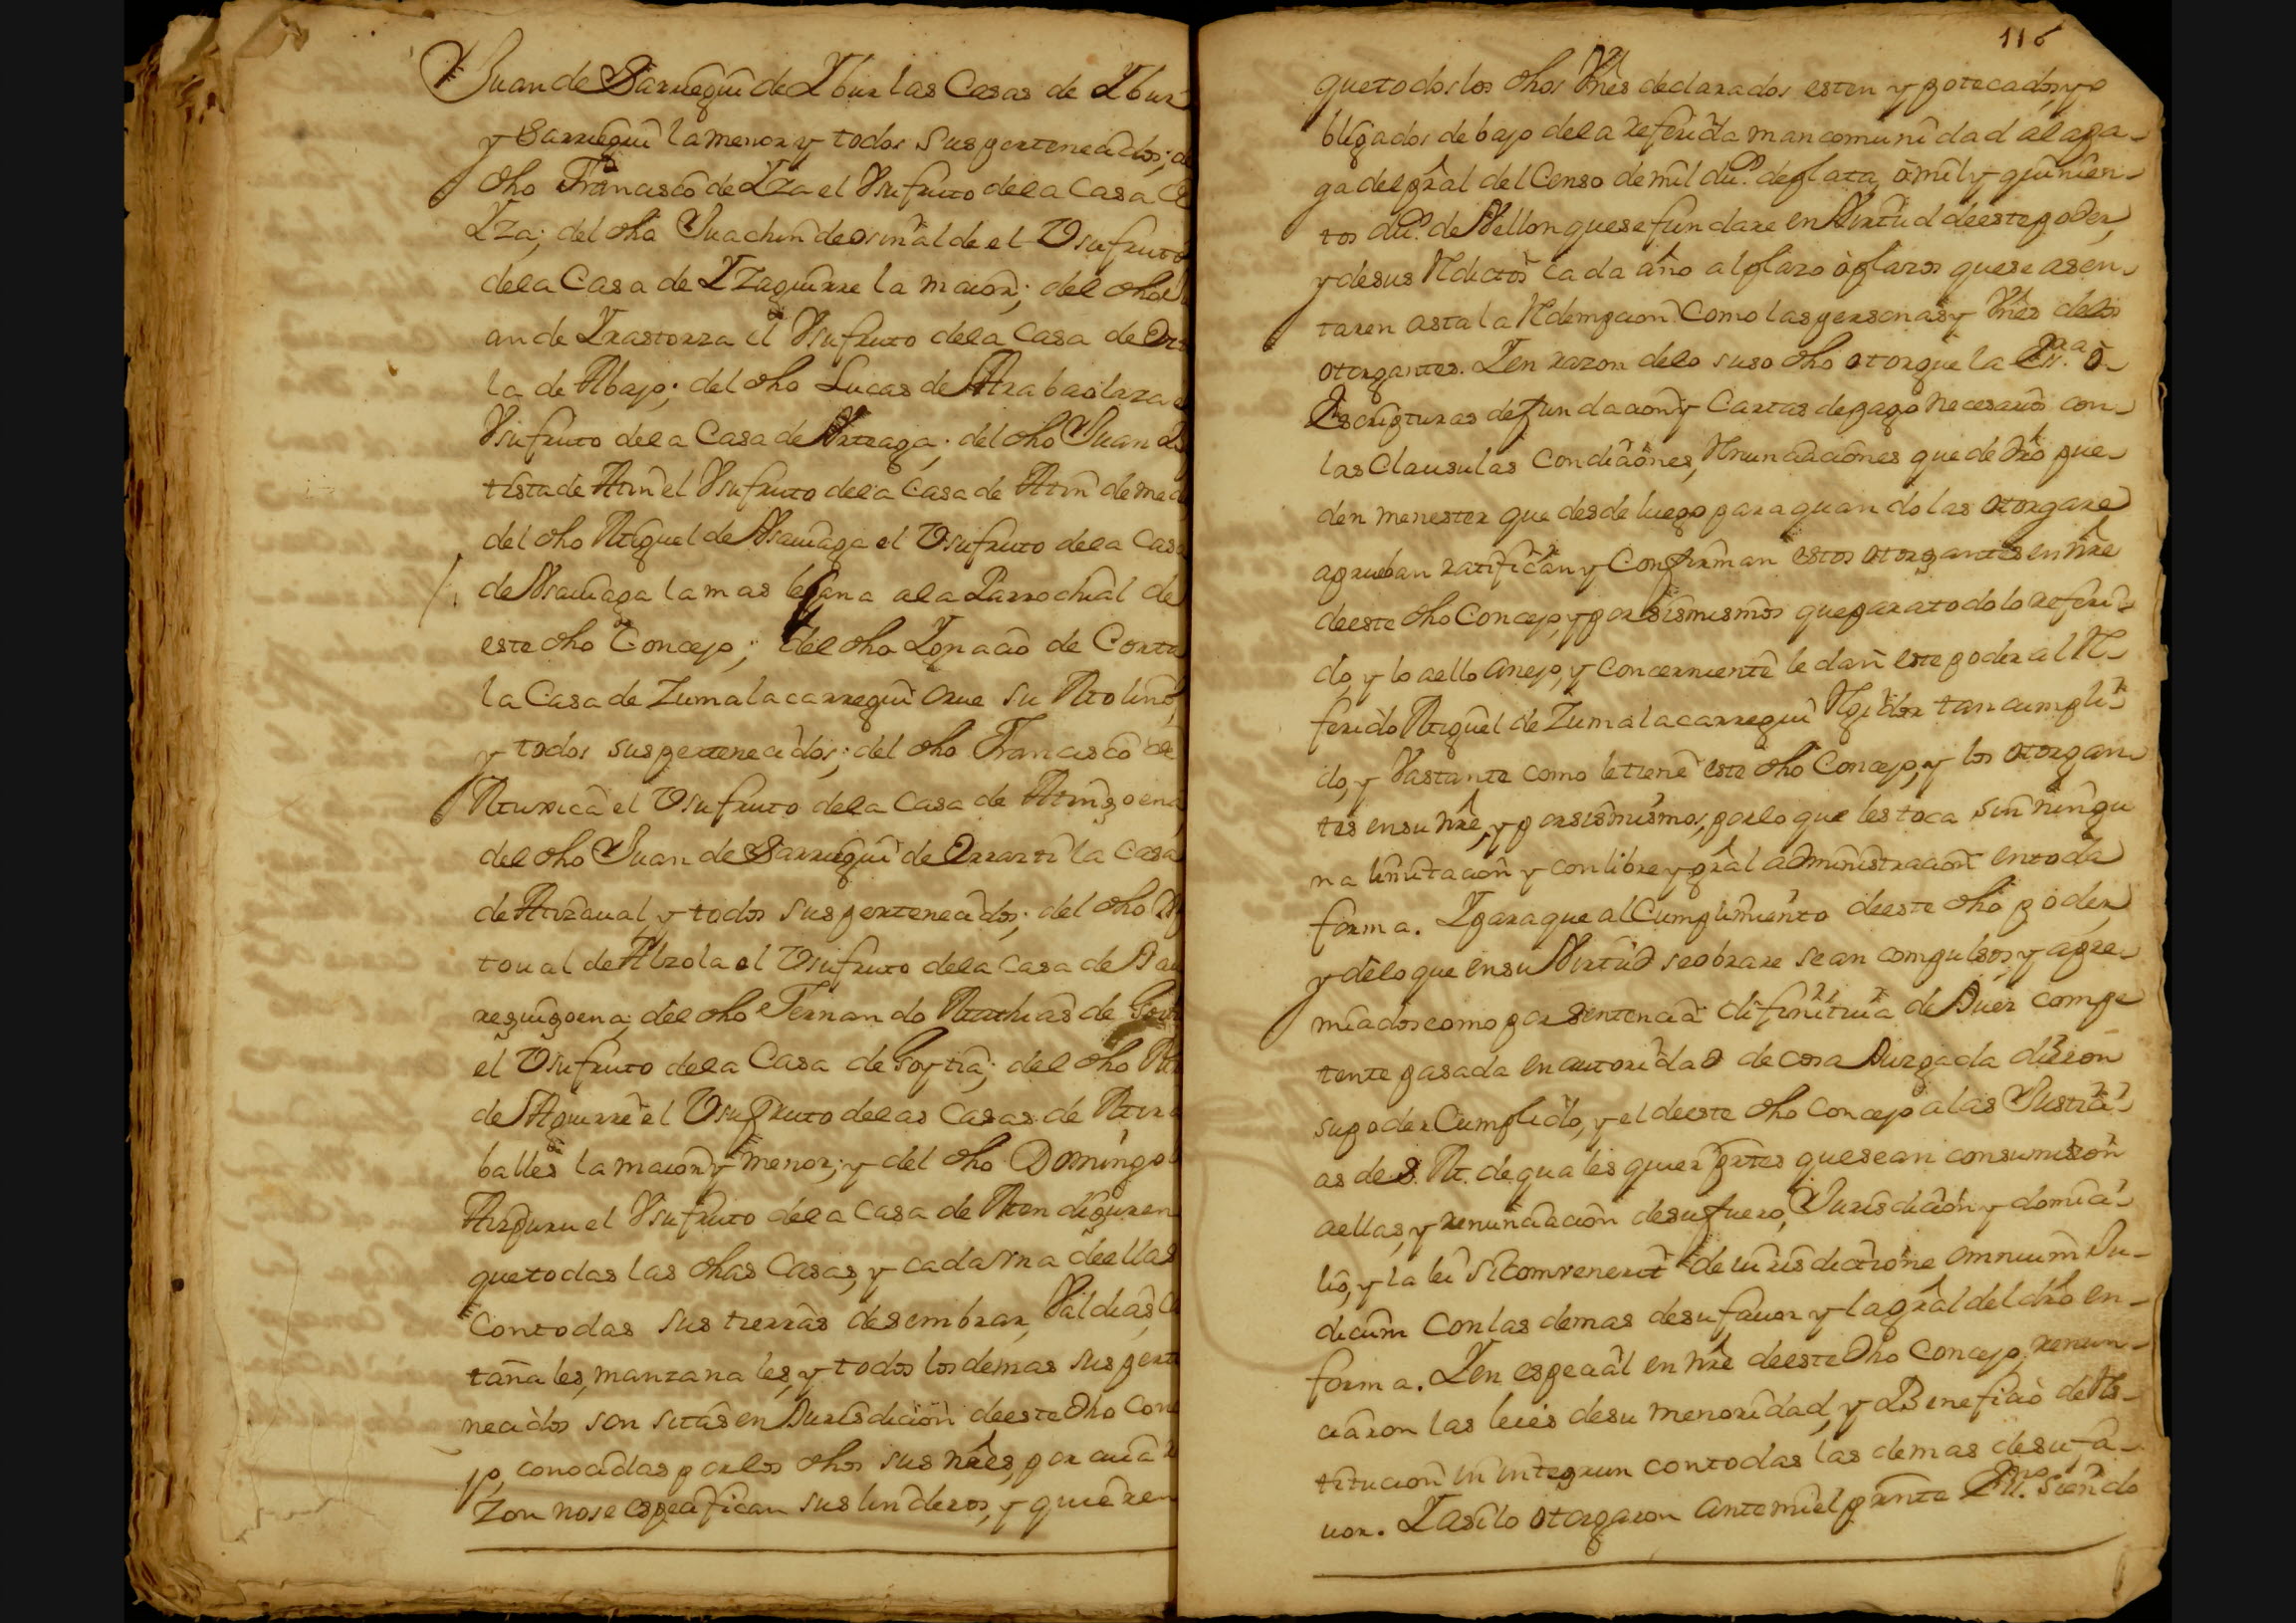 Juan de Sarriegui de Ybur las Casas de Ybur
y Sarriegui la menor y todos sus pertenecidos; de
dho Francisco de Yza el Vsufruto dela Casa de
Yza; del dho Juachin de osinalde el Vsufruto
dela Casa de Yzaguirre la maior; del dho
an de Yrastorza el Vsufruto dela Casa de
la de Abajo; del dho Lucas de Arabaolaza e
Vsufruto dela Casa de Arteaga; del dho Juan
tista de Atin el Vsufruto dela Casa de Atin de
del dho Miguel de Asauiaga el Vsufruto dela Casa
de Asauiaga la mas lejana ala Parrochial de
este dho Concejo; del dho Ygnacio de Corta
la Casa de Zumalacarregui orue su Molino,
y todos sus pertenecidos; del dho Francisco de
Muxica el Vsufruto dela Casa de
del dho Juan de Sarriegui de Orrarti la Casa
de y todos sus pertenecidos; del dho
toual de Alzola el Vsufruto dela Casa de
reguigoena; del dho Fernando Mathias de
el Vsufruto dela Casa de Goytia; del dho
de Aguirre el Vsufruto delas Casas de
balles la maior y menor; y del dho Domingo
el Vsufruto dela Casa de Mendiguren
que todas las dhas Casas, y cada vna deellas
con todas sus tierras desembrar, Valdias,
tañales, manzanales, y todos los demas sus perte
necidos son sitas en Jurisdicion deeste dho Conc
jo, conocidas por los dhos sus nres, por cuia
zon nose especifican sus linderos, y quieren
116
que todos los dhos Vnes declarados esten ypotecados, y o
bligados debajo dela referida mancomunidad ala pa-
ga del pral del Censo de mil du.s de plata, o mil y quinien-
tos du.s de Vellon que se fundare en Virtud deeste poder,
y de sus Reditos cada año al plazo o plazos que se asen-
taren asta la Redempcion Como las personas y Vnes delos
otorgantes. Y en razon delo suso dho otorgue la Ess.ra o
Escripturas de fundacion y Cartas de pago necesarios con
las Clausulas Condiciones, Renunciaciones que de dro pue-
den menester que desde luego para quando las otorgare
aprueban ratifican y Confirman estos otorgantes en nre
deeste dho Concejo, y por sismismos que para todo lo referi-
do, y lo aello anejo, y concerniente le dan este poder al Re-
ferido Miguel de Zumalacarregui Rgidor tan cumpli-
do, y Vastante como le tiene este dho Concejo, y los otorgan-
tes en su nre, y por sismismos, por lo que les toca sin ningu
na limitacion y con libre y gral administracion en toda
forma. Y para que al Cumplimiento deeste dho poder,
y delo que en su Virtud se obrare sean compulsos, y apre-
miados como por sentencia difinitiua de Juez compe
tente pasada en autoridad de cosa Juzgada dieron
su poder Cumplido, y el deeste dho Concejo alas Justici-
as de S. M. de quales quier partes que sean con sumision
aellas, y renunciacion desu fuero, Jurisdicion y domici-
lio, y la lei sit convenerit de iurisdictione omnium Ju-
dicum con las demas desu fauor y la gral del dro en
forma. Y en especial en nre deeste dho Concejo, renun-
ciaron las leies desu menoridad, y el Beneficio de Res-
titucion in integrun con todas las demas desu fa-
uor. Y asi lo otorgaron ante mi el prente Ess.no Siendo